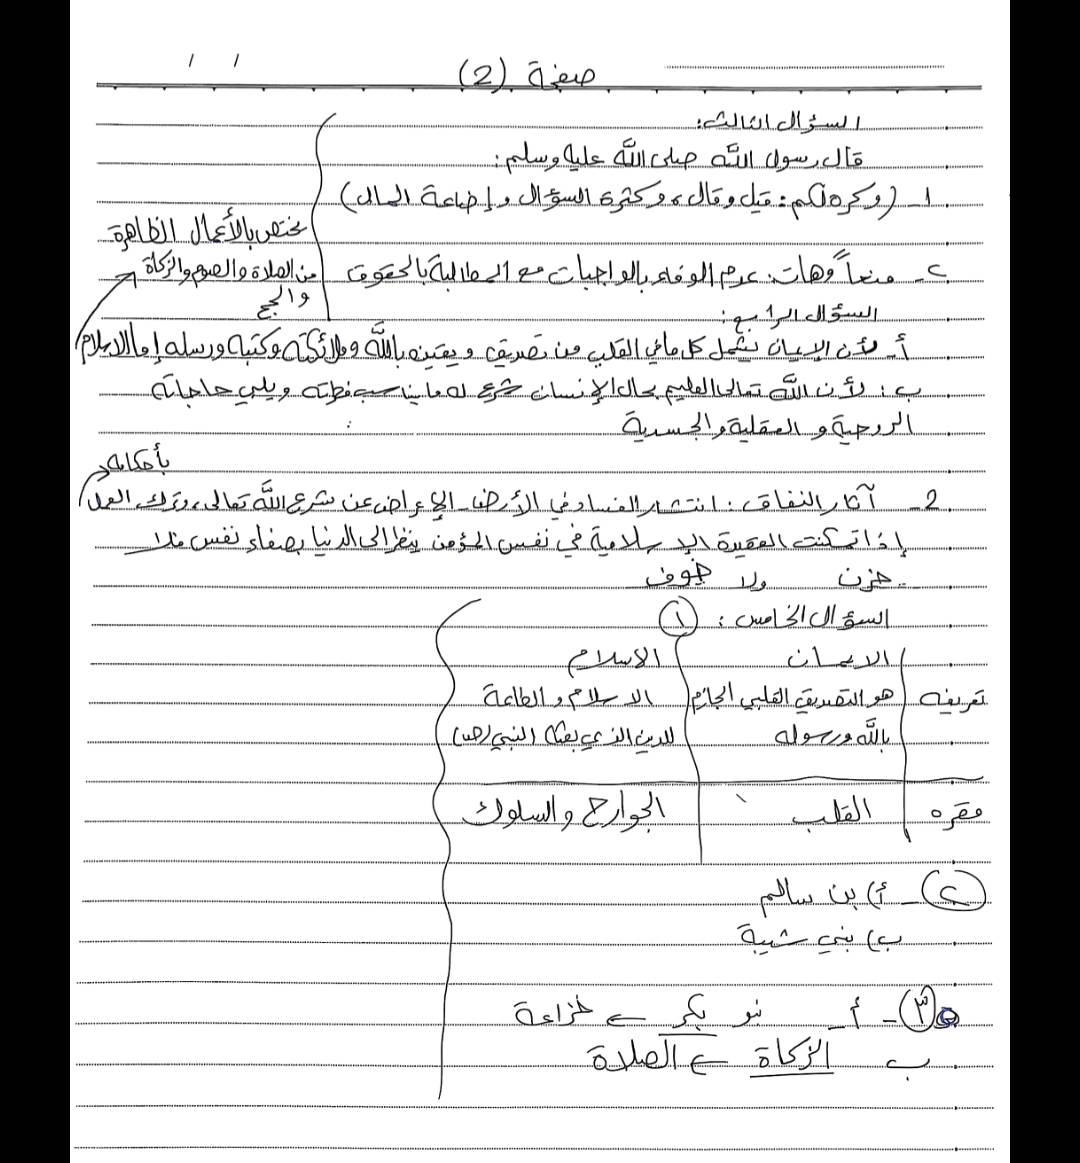 صفحة (2)
/ /
السؤال الثالث:
قال رسول الله صلى الله عليه وسلم:
1- (وكره لكم: قيل وقال، وكثرة السؤال وإضاعة المال)
٢- منعاً وهات: عدم الوفاء بالواجبات مع المطالبة بالحقوق
السؤال الرابع:
أ- لأن الإيمان يشمل كل ما في القلب من تصديق ويقين بالله وملائكته وكتبه ورسله إما الاسلام
يختص بالأعمال الظاهرة
من الصلاة والصوم والزكاة
والحج
ب: لأن الله تعالى العليم بحال الإنسان شرع له ما يناسب فطرته ويلبي حاجاته
الروحية والعقلية والجسدية
2- آثار النفاق: انتشار الفساد في الأرض - الإعراض عن شرع الله تعالى، وترك العمل
بأحكامه
إذا تمكنت العقيدة الإسلامية في نفس المؤمن ينظر إلى الدنيا بصفاء نفس فلا
حزن ولا خوف
السؤال الخامس: ①
الايمان الاسلام
تعريفه هو التصديق القلبي الجازم الاسلام والطاعة
بالله ورسوله للدين الذي بعث به النبي (ص)
مقره القلب الجوارح والسلوك
٢- أ) بن سالم
ب) بني شيبة
٣- أ- بنو بكر ← خزاعة
ب الزكاة ← الصلاة